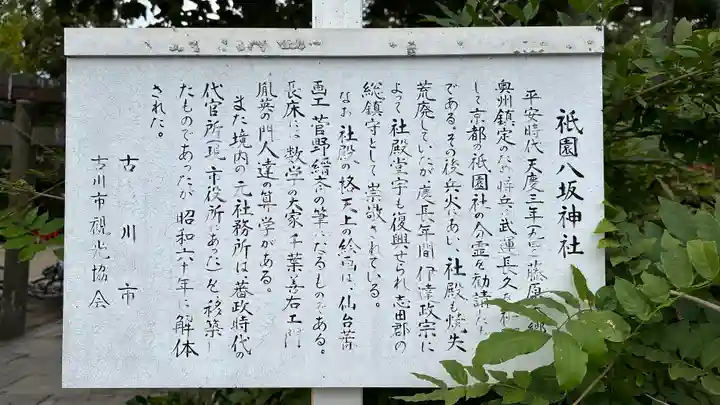 祇園八坂神社
平安時代 天慶三年 藤原
奥州鎮定のため将兵の武運長久を
して京都の祇園社の分霊を勧請
である。その後兵火にあい、社殿も焼失
荒廃していたが慶長年間 伊達政宗に
よって社殿堂宇も復興せられ志田郡の
総鎮守として崇敬されている。
なお、社殿の格天上の絵画は、仙台藩
画工 菅野の筆になるものである。
長床には数学の大家 千葉喜右エ門
胤英の門人達の算学がある。
また境内の元社務所は藩政時代の
代官所(現市役所にあった)を移築し
たものであったが昭和六十年に解体
された。
古川市
古川市観光協会